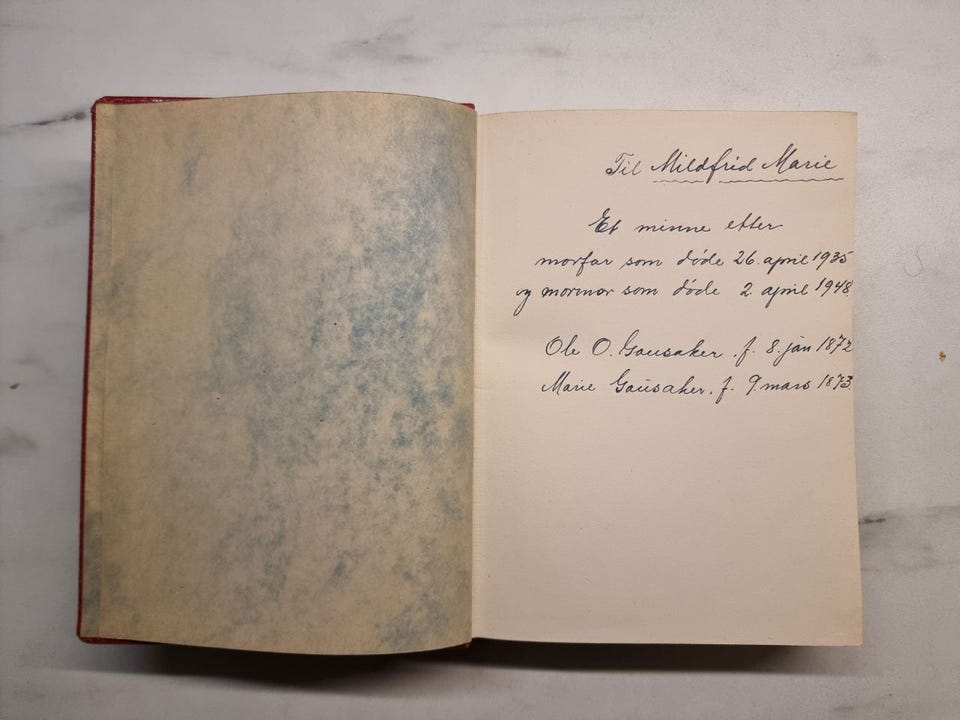 Til Mildfrid Marie
Et minne etter
morfar som døde 26. april 1935
og mormor som døde 2. april 1948.
Ole O. Gausaker. f. 8. jan 1872
Marie Gausaker. f. 9 mars 1873.